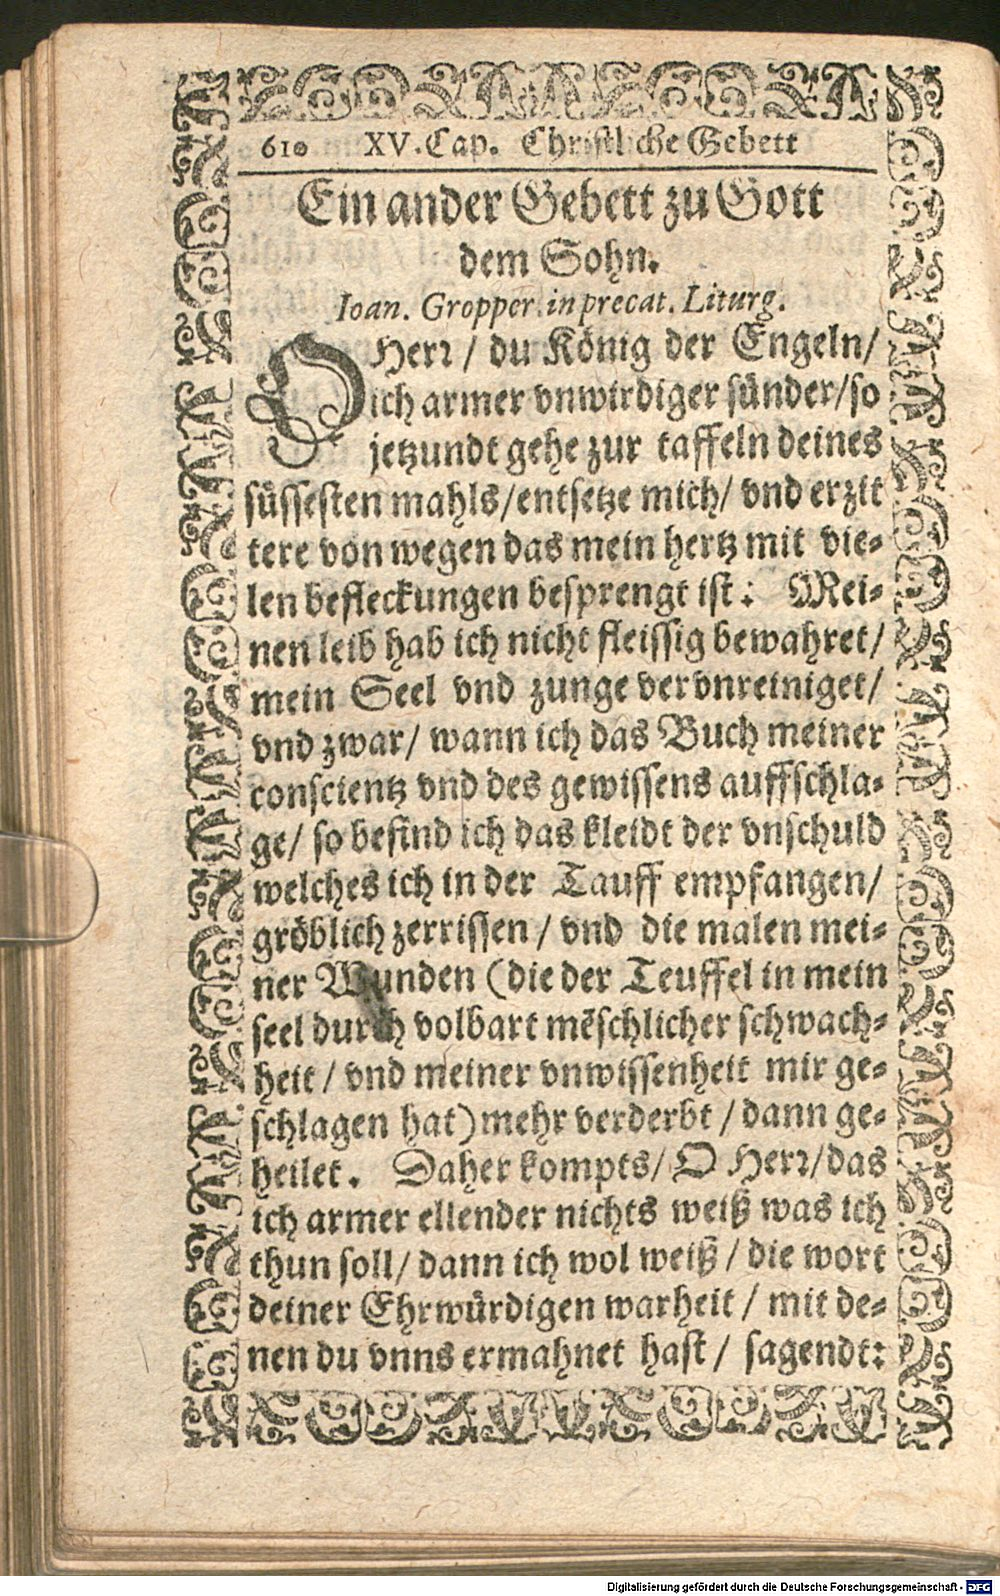 610 XV. Cap. Christliche Gebett
Ein ander Gebett zu Gott
dem Sohn.
Ioan. Gropper. in precat. Liturg.
O Herꝛ / du König der Engeln/
ich armer vnwirdiger sünder/so
jetzundt gehe zur taffeln deines
süssesten mahls/entsetze mich/ vnd erzit
tere von wegen das mein hertz mit vie-
len befleckungen besprengt ist: Mei-
nen leib hab ich nicht fleissig bewahret/
mein Seel vnd zunge vervnreiniget/
vnd zwar/ wann ich das Buch meiner
conscientz vnd des gewissens auffschla-
ge/ so befind ich das kleidt der vnschuld
welches ich in der Tauff empfangen/
gröblich zerrissen / vnd die malen mei-
ner Wunden (die der Teuffel in mein
seel durch volbart mēschlicher schwach-
heit / vnd meiner vnwissenheit mir ge-
schlagen hat) mehr verderbt / dann ge-
heilet. Daher kompts/ O Herꝛ/das
ich armer ellender nichts weiß was ich
thun soll/ dann ich wol weiß / die wort
deiner Ehrwürdigen warheit / mit de-
nen du vnns ermahnet hast / sagendt:
Digitalisierung gefördert durch die Deutsche Forschungsgemeinschaft - DFG